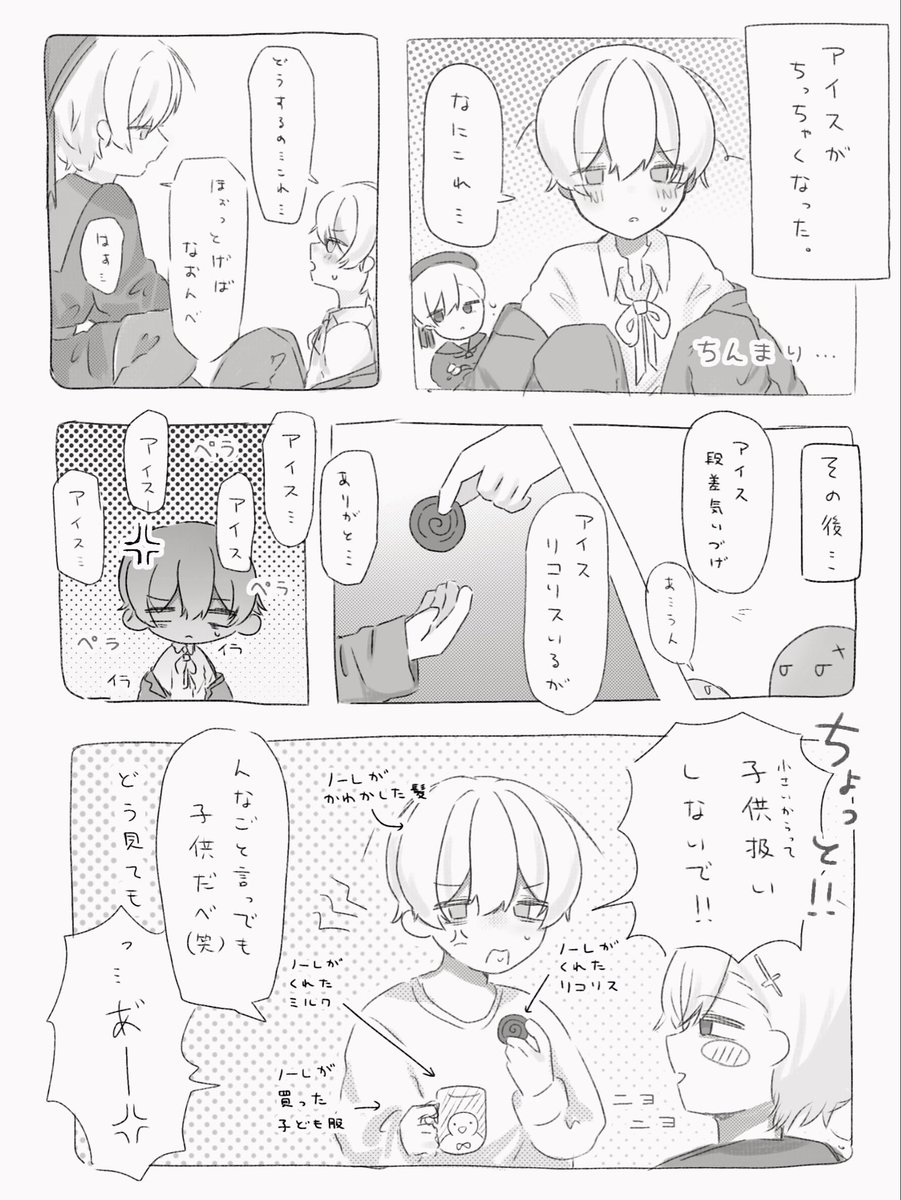 アイスが
ちっちゃくなった。
なにこれ…
ちんまり…
どうするの…これ…
ほぅっとげば
なおんべ
はぁ…
その後…
アイス
段差気いづげ
あ…うん
アイス
リコリスいるが
ありがと…
アイス…
アイス
アイスー
アイス…
ペラ
ペラ
ペラ
イラ
イラ
ちょっと!!
小さいからって
子供扱い
しないで!!
ノーレが
かわかした髪
ノーレが
くれた
リコリス
ノーレが
くれた
ミルク
ノーレが
買った
子ども服
ニヨ
ニヨ
んなごと言っでも
子供だべ(笑)
どう見ても
っ…あ゛ー